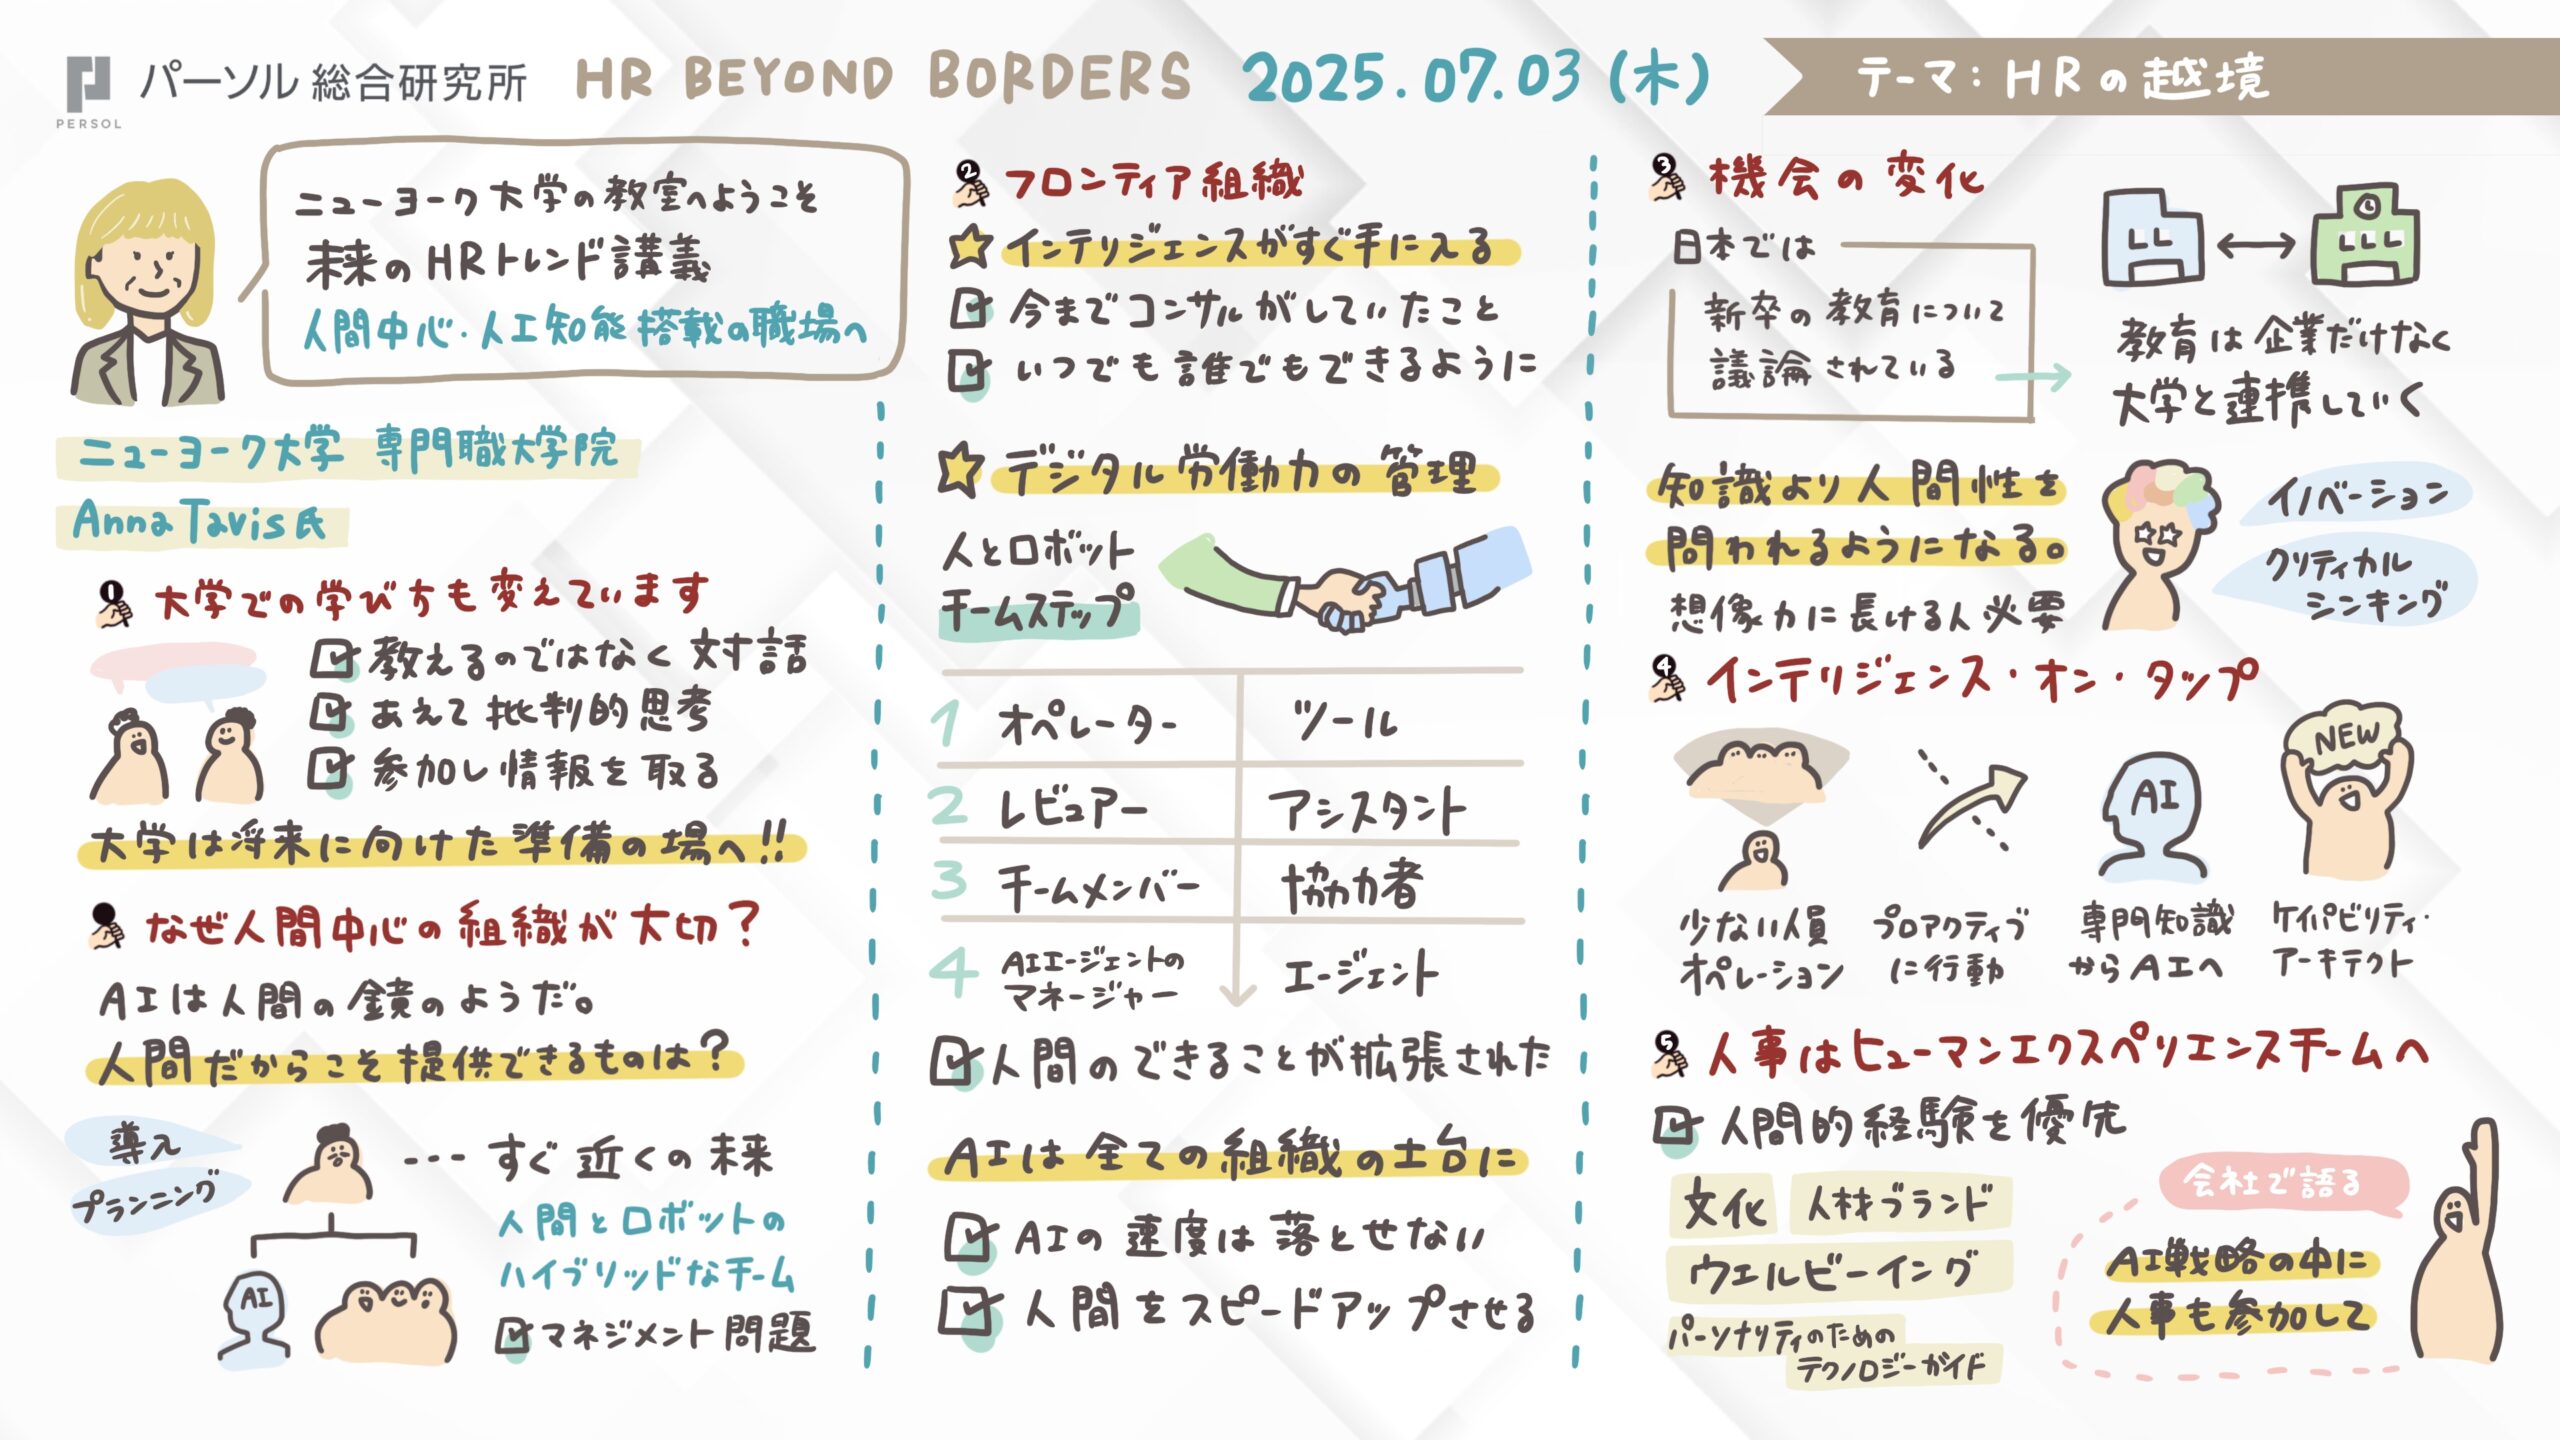 パーソル 総合研究所
PERSOL
HR BEYOND BORDERS
2025.07.03 (木)
テーマ：HRの越境
ニューヨーク大学の教室へようこそ
未来のHRトレンド講義
人間中心・人工知能搭載の職場へ
ニューヨーク大学 専門職大学院
Anna Tavis氏
1 大学での学び方も変えています
教えるのではなく対話
あえて批判的思考
参加し情報を取る
大学は将来に向けた準備の場へ!!
なぜ人間中心の組織が大切？
AIは人間の鏡のようだ。
人間だからこそ提供できるものは？
導入
プランニング
AI
--- すぐ近くの未来
人間とロボットの
ハイブリッドなチーム
マネジメント問題
2 フロンティア組織
インテリジェンスがすぐ手に入る
今までコンサルがしていたこと
いつでも誰でもできるように
デジタル労働力の管理
人とロボット
チームステップ
1 オペレーター ツール
2 レビュアー アシスタント
3 チームメンバー 協力者
4 AIエージェントの
マネージャー
エージェント
人間のできることが拡張された
AIは全ての組織の土台に
AIの速度は落とせない
人間をスピードアップさせる
3 機会の変化
日本では
新卒の教育について
議論されている
教育は企業だけなく
大学と連携していく
知識より人間性を
問われるようになる。
想像力に長ける人必要
イノベーション
クリティカル
シンキング
4 インテリジェンス・オン・タップ
少ない人員
オペレーション
プロアクティブ
に行動
AI
専門知識
からAIへ
NEW
ケイパビリティ・
アーキテクト
5 人事はヒューマンエクスペリエンスチームへ
人間的経験を優先
文化
人材ブランド
ウェルビーイング
パーソナリティのための
テクノロジーガイド
会社で語る
AI戦略の中に
人事も参加して